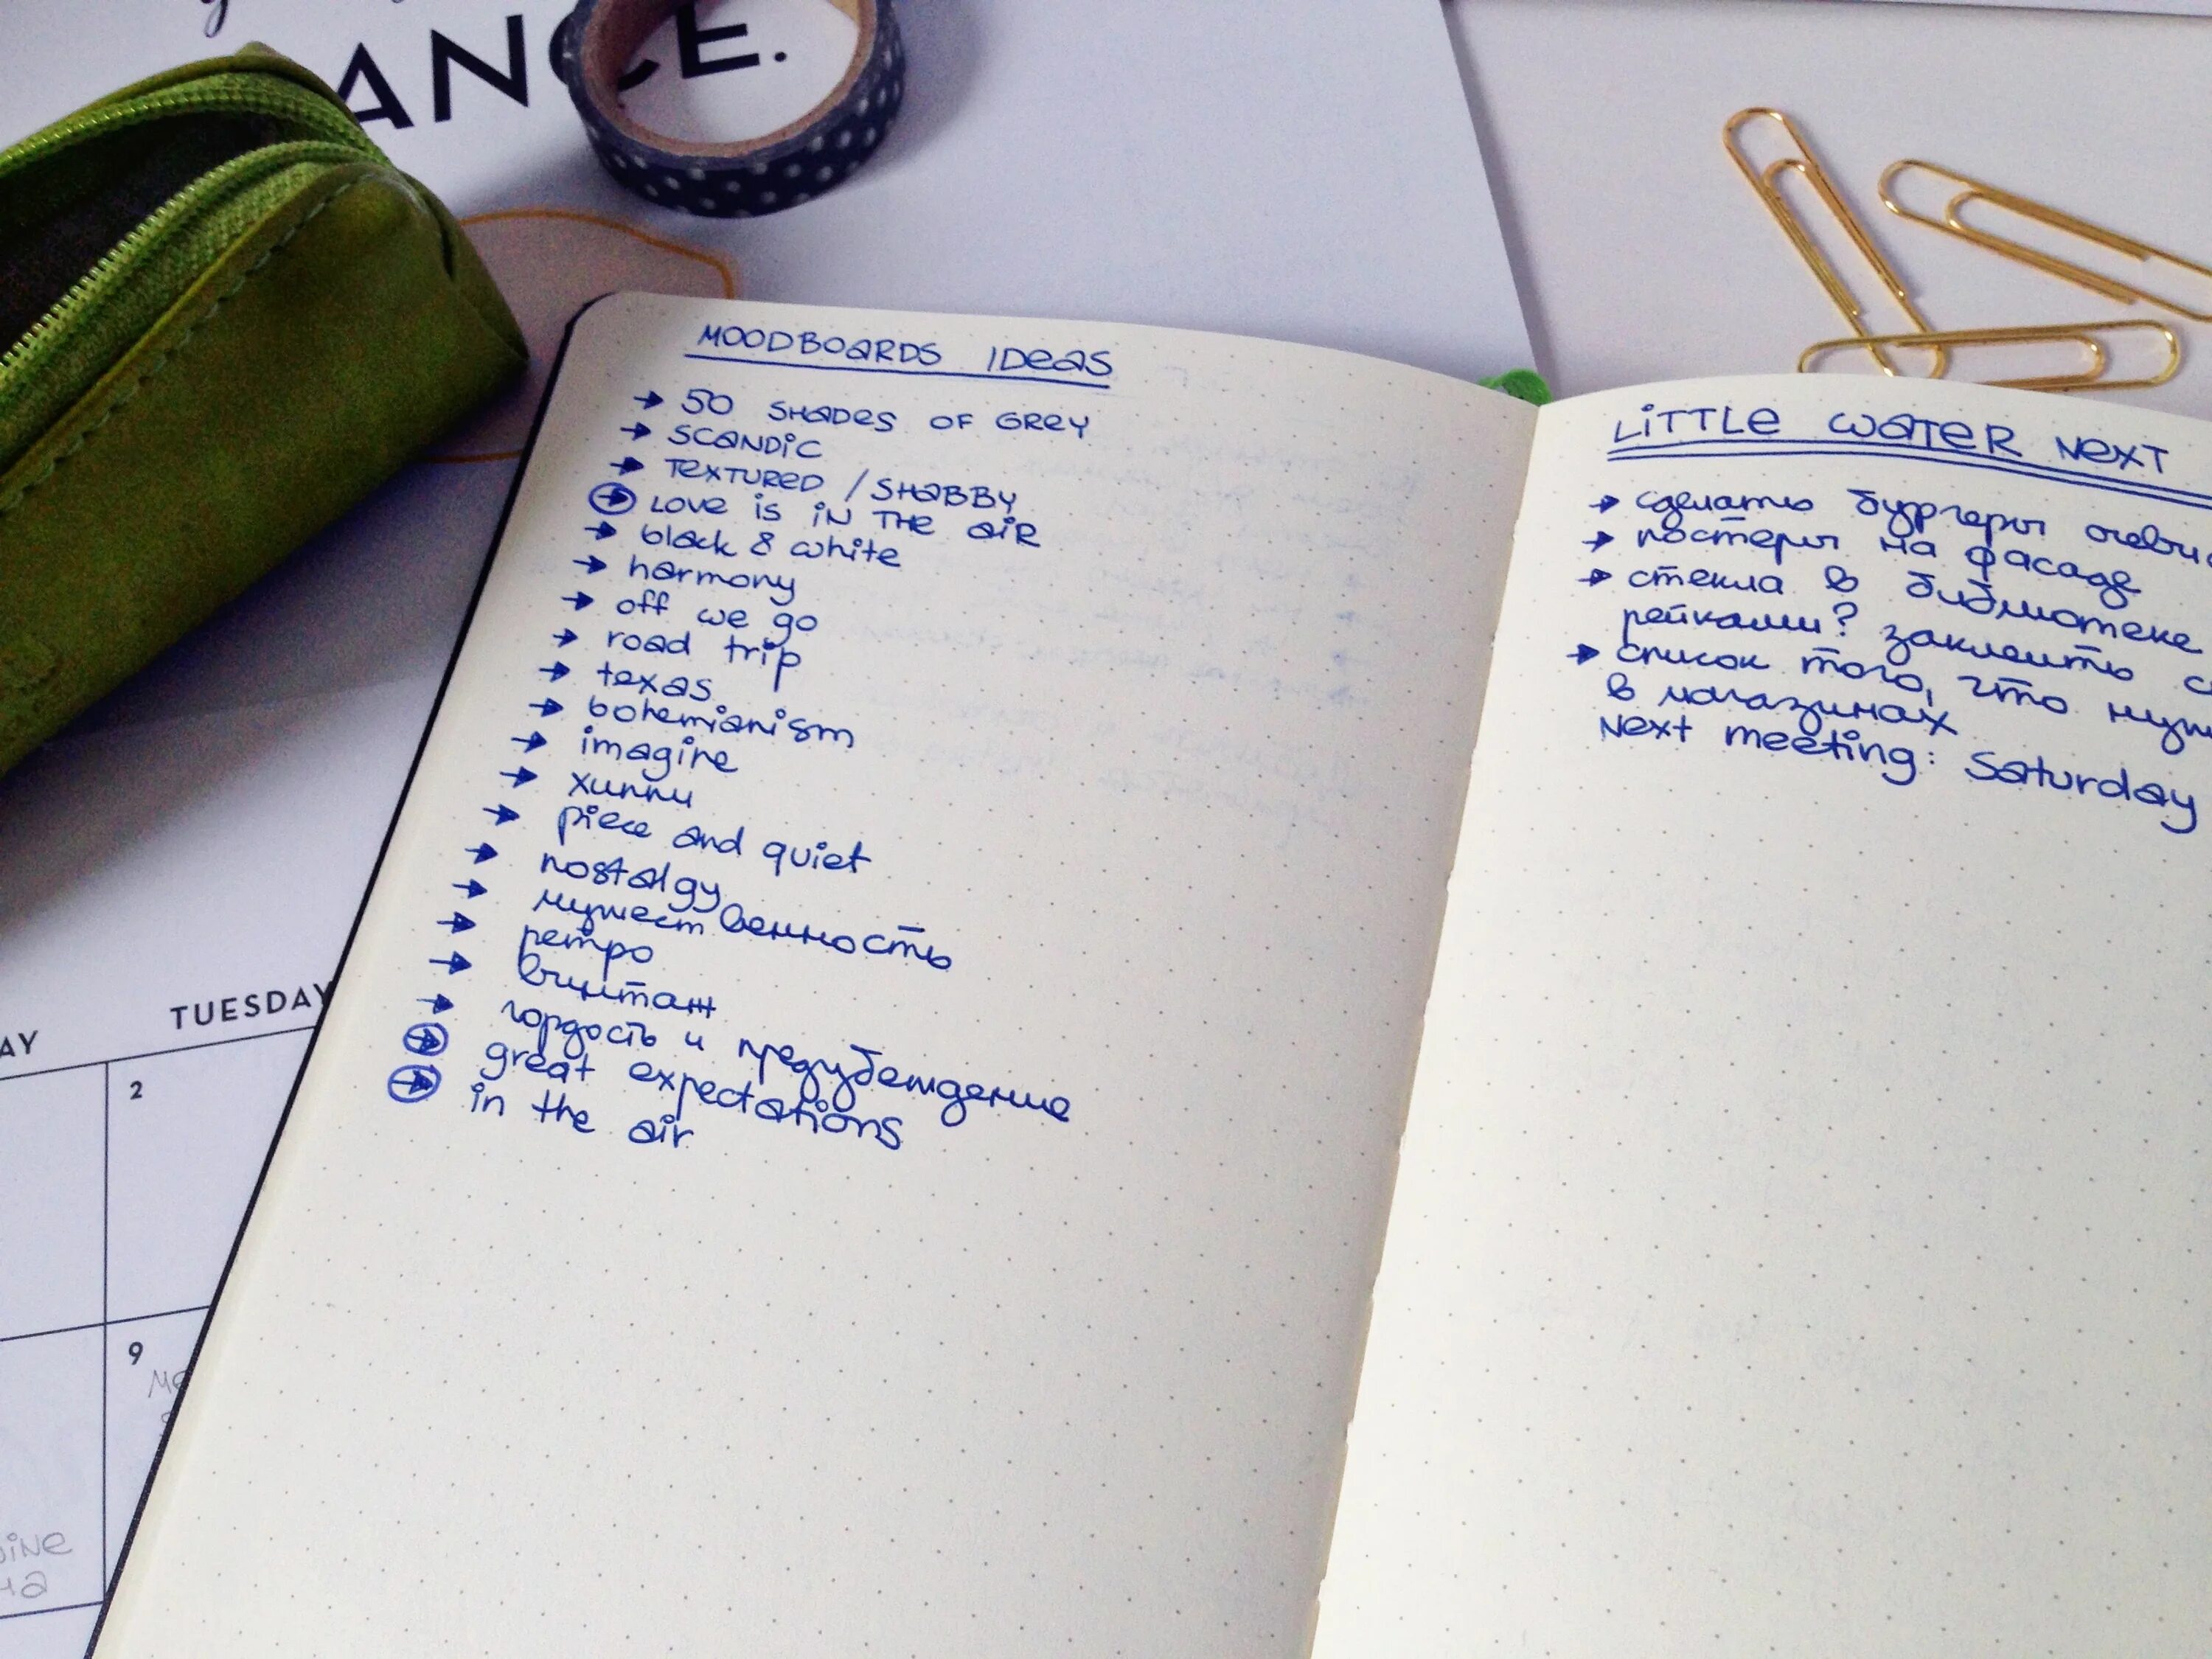 ANCE.
MOODBOARDS IDEAS
→ 50 SHADES OF GREY
→ SCANDIC
→ TEXTURED / SHABBY
→ LOVE IS IN THE AIR
→ black & white
→ harmony
→ off we go
→ road trip
→ texas
→ bohemianism
→ imagine
→ хиппи
→ piece and quiet
→ nostalgy
→ мужественность
→ ретро
→ винтаж
→ гордость и предубеждение
→ great expectations
→ in the air
LITTLE WATER NEXT
→ сделать бургеры
→ постеры на фасаде
→ стекла в библиотеке
рейками? заклеить
→ список того, что
в магазинах
Next meeting: Saturday
AY TUESDAY
2
9